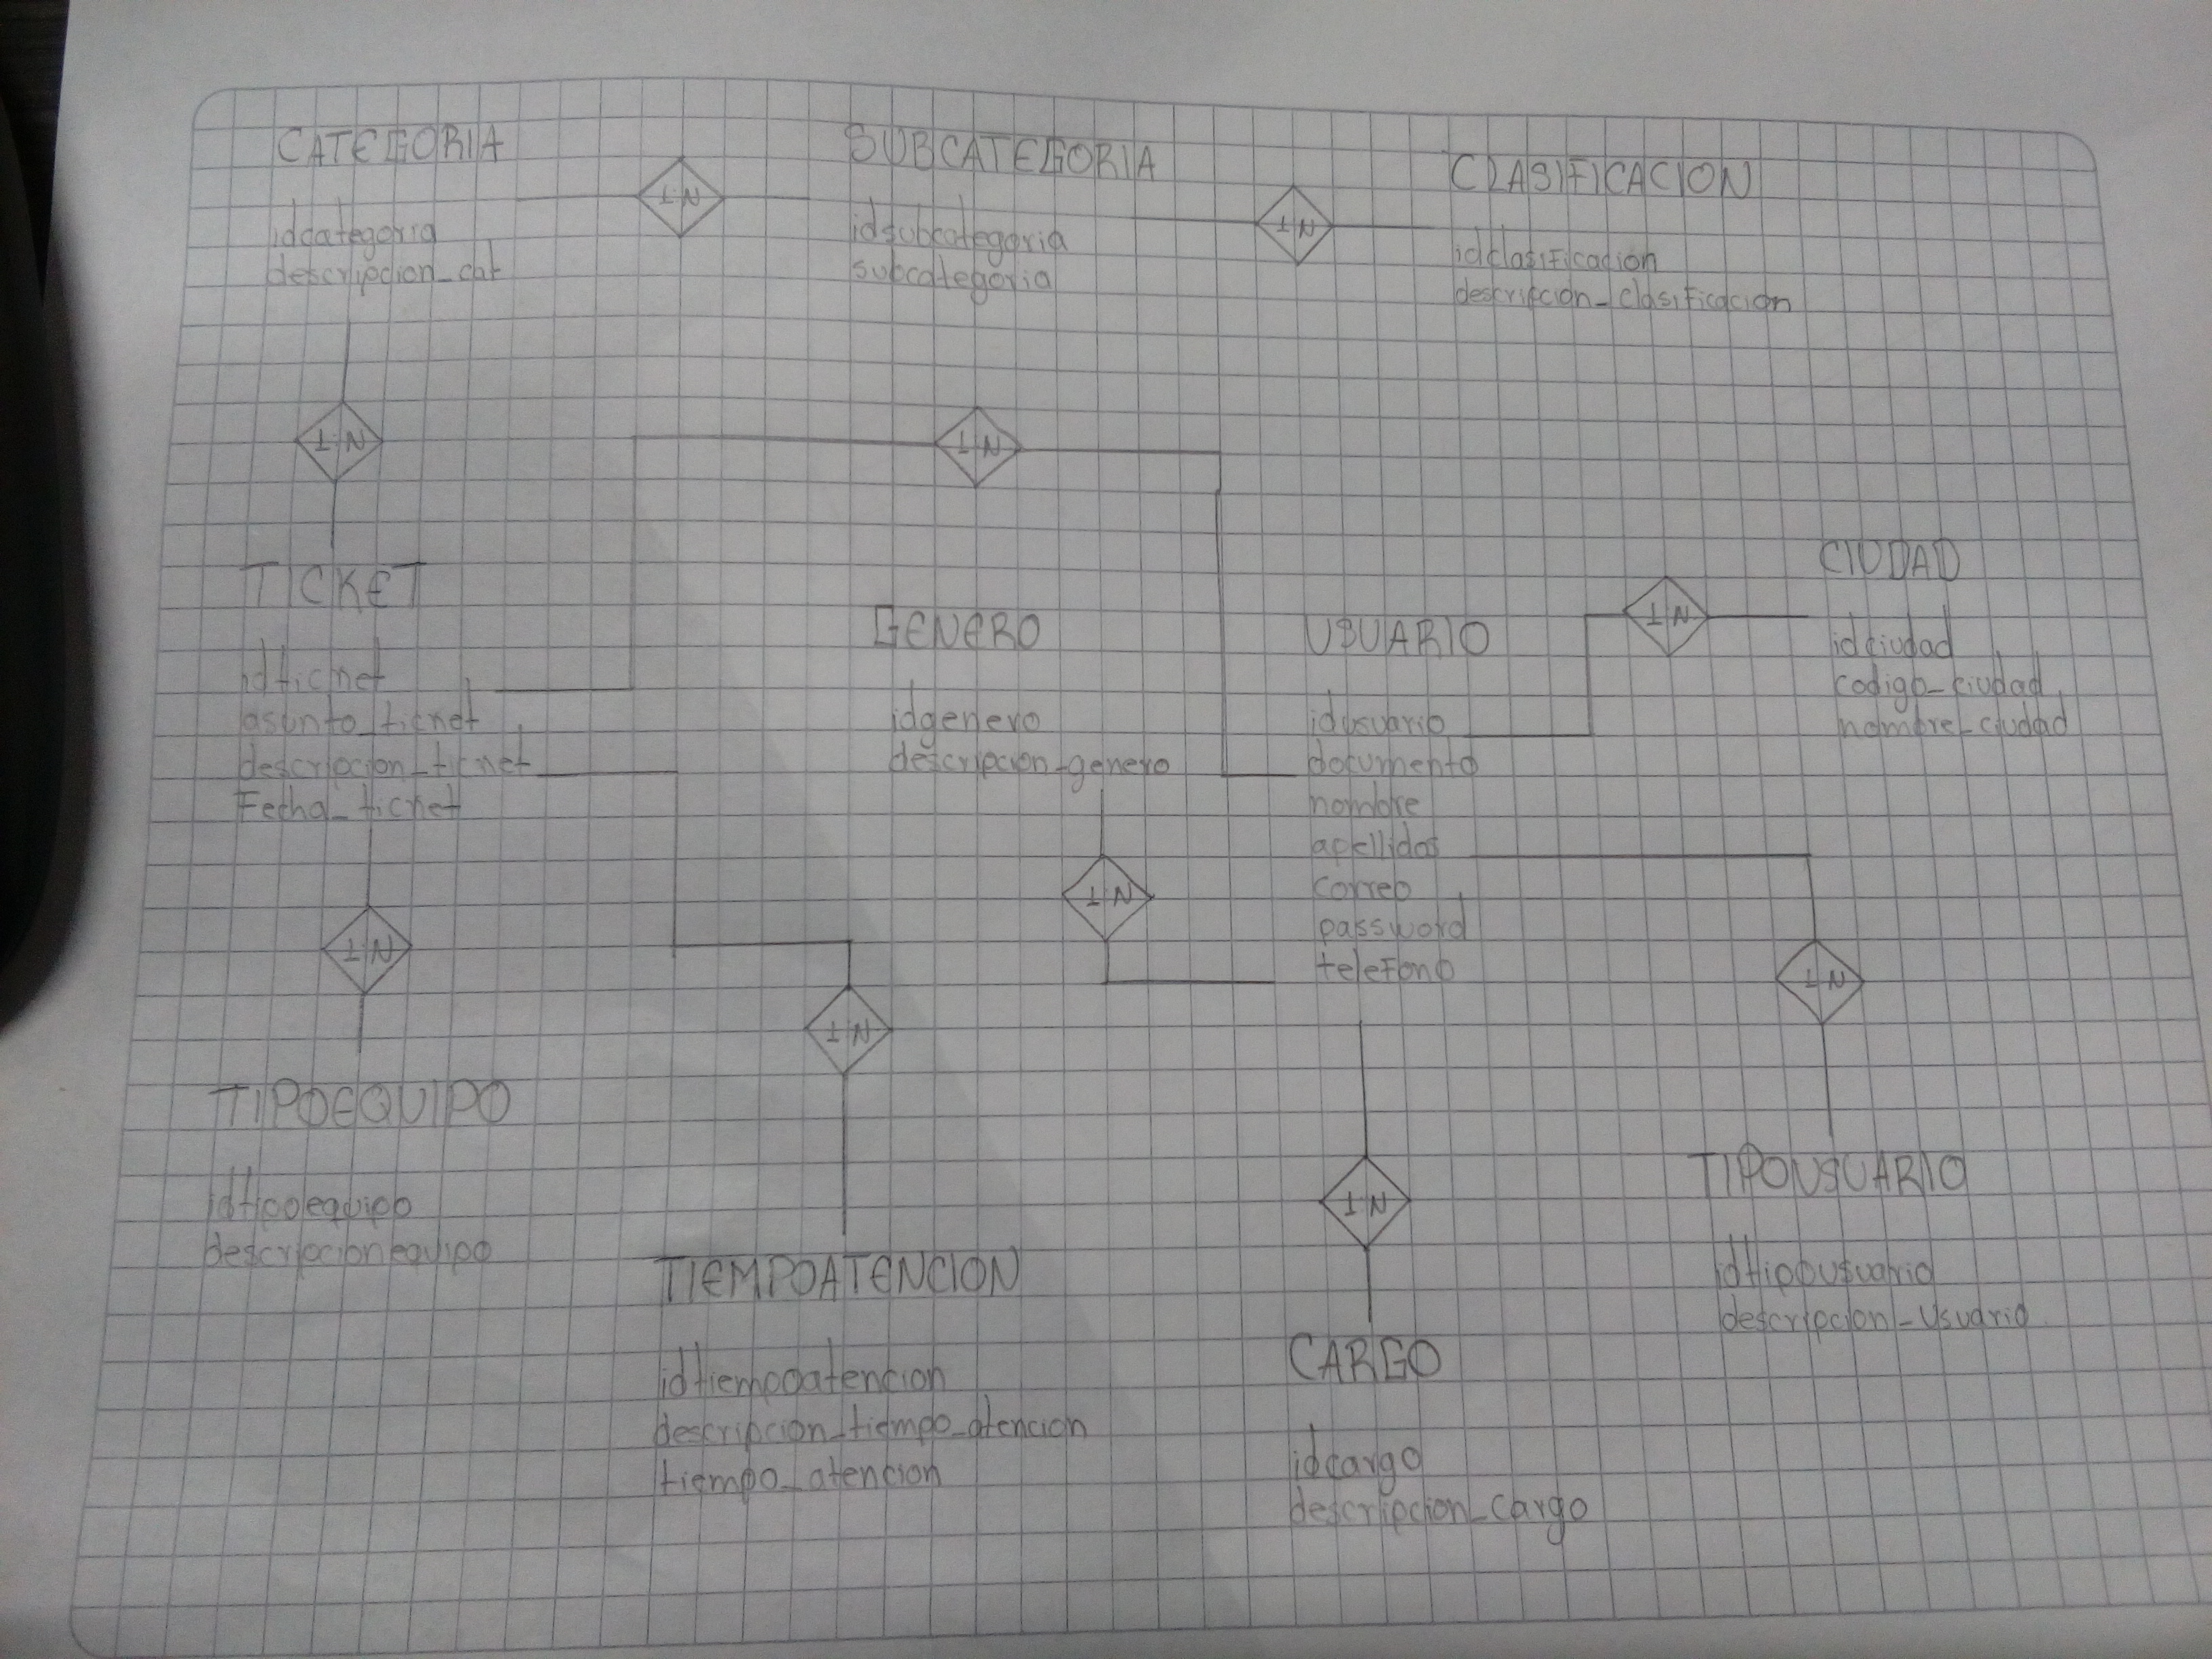 CATEGORIA
idcategoria
descripcion_cat
1 N
SUBCATEGORIA
idsubcategoria
subcategoria
1 N
CLASIFICACION
idclasificacion
descripcion_clasificacion
1 N
1 N
TICKET
idticket
asunto_ticket
descripcion_ticket
Fecha_ticket
GENERO
idgenero
descripcion_genero
USUARIO
idusuario
documento
nombre
apellidos
correo
password
telefono
1 N
CIUDAD
idciudad
codigo_ciudad
nombre_ciudad
1 N
1 N
1 N
1 N
TIPOEQUIPO
idtipoequipo
descripcionequipo
TIEMPOATENCION
idtiempoatencion
descripcion_tiempo_atencion
tiempo_atencion
1 N
CARGO
idcargo
descripcion_cargo
TIPOUSUARIO
idtipousuario
descripcion_usuario